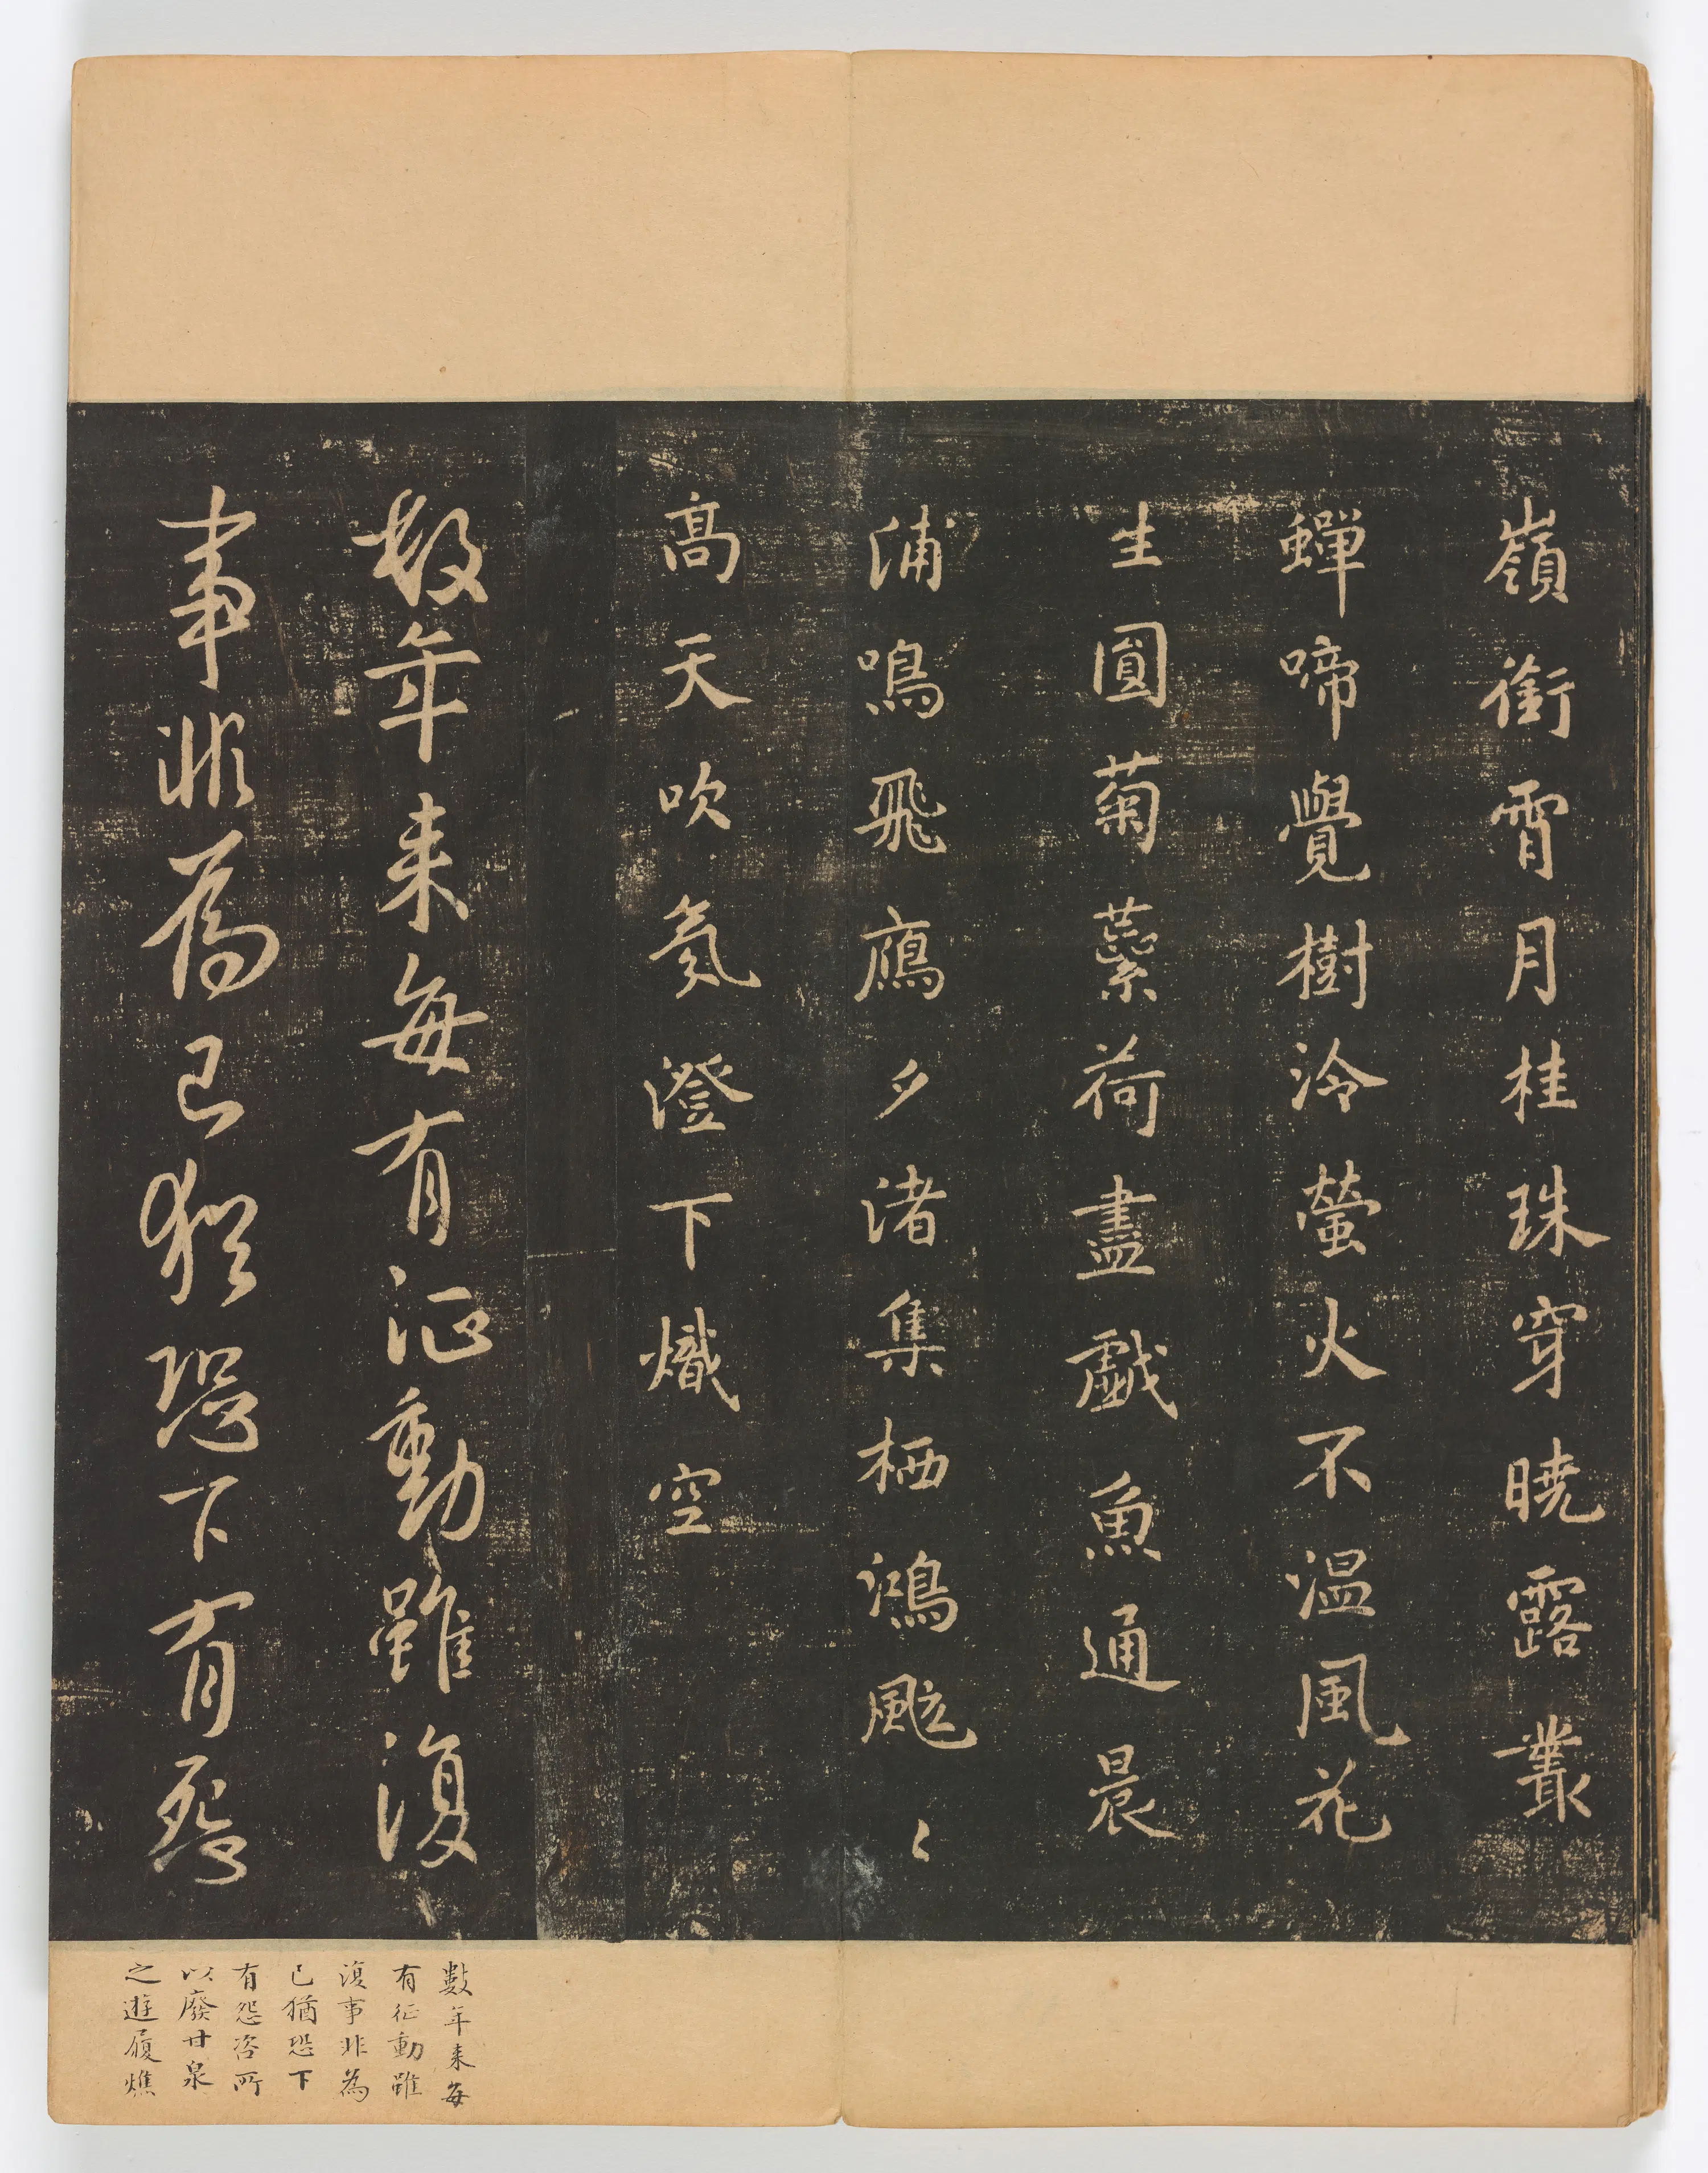 嶺銜霄月桂珠穿曉露叢
蟬啼覺樹冷螢火不溫風花
生圓菊蘂荷盡戲魚通晨
浦鳴飛鴈夕渚集栖鴻颭〻
高天吹氛澄下熾空
数年来每有征動雖復
事非為己猶恐下有怨
數年来每
有征動雖
復事非為
己猶恐下
有怨咨所
以廢甘泉
之遊履燋